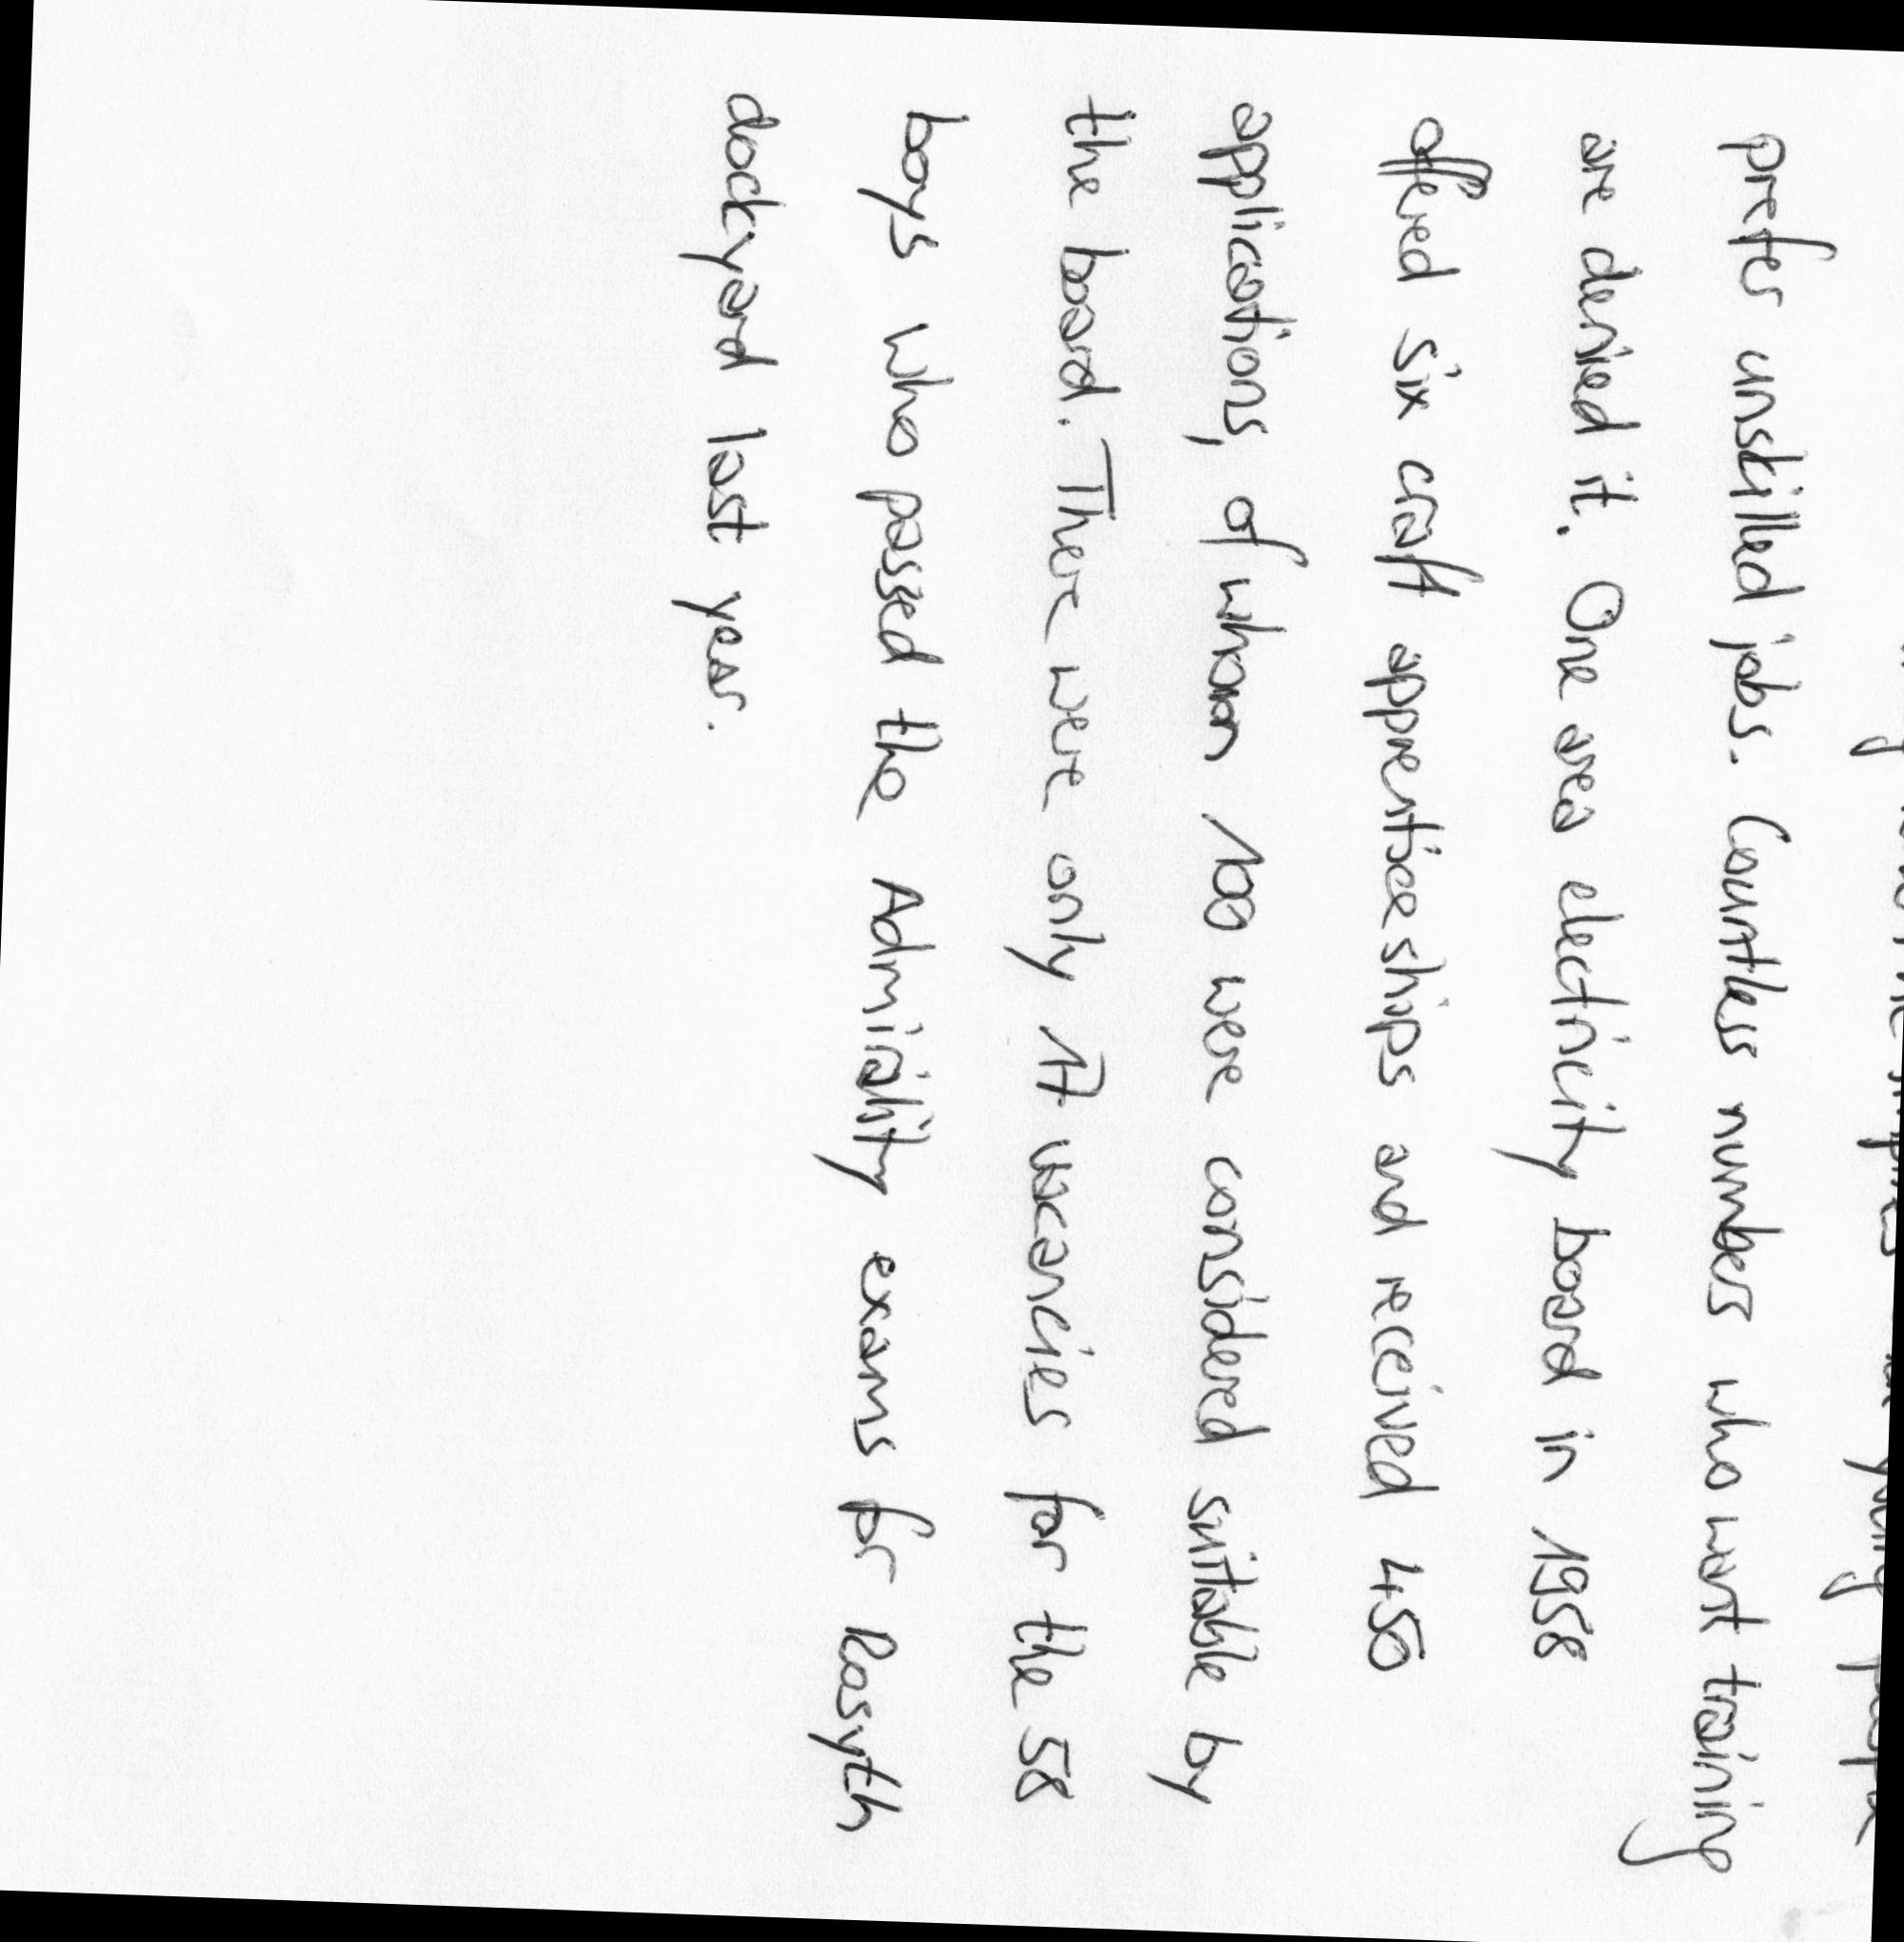 young people
prefer unskilled jobs. Countless numbers who want training
are denied it. One area electricity board in 1958
offered six craft apprenticeships and received 450
applications, of whom 100 were considered suitable by
the board. There were only 17 vacancies for the 58
boys who passed the Admirality exams for Rosyth
dockyard last year.